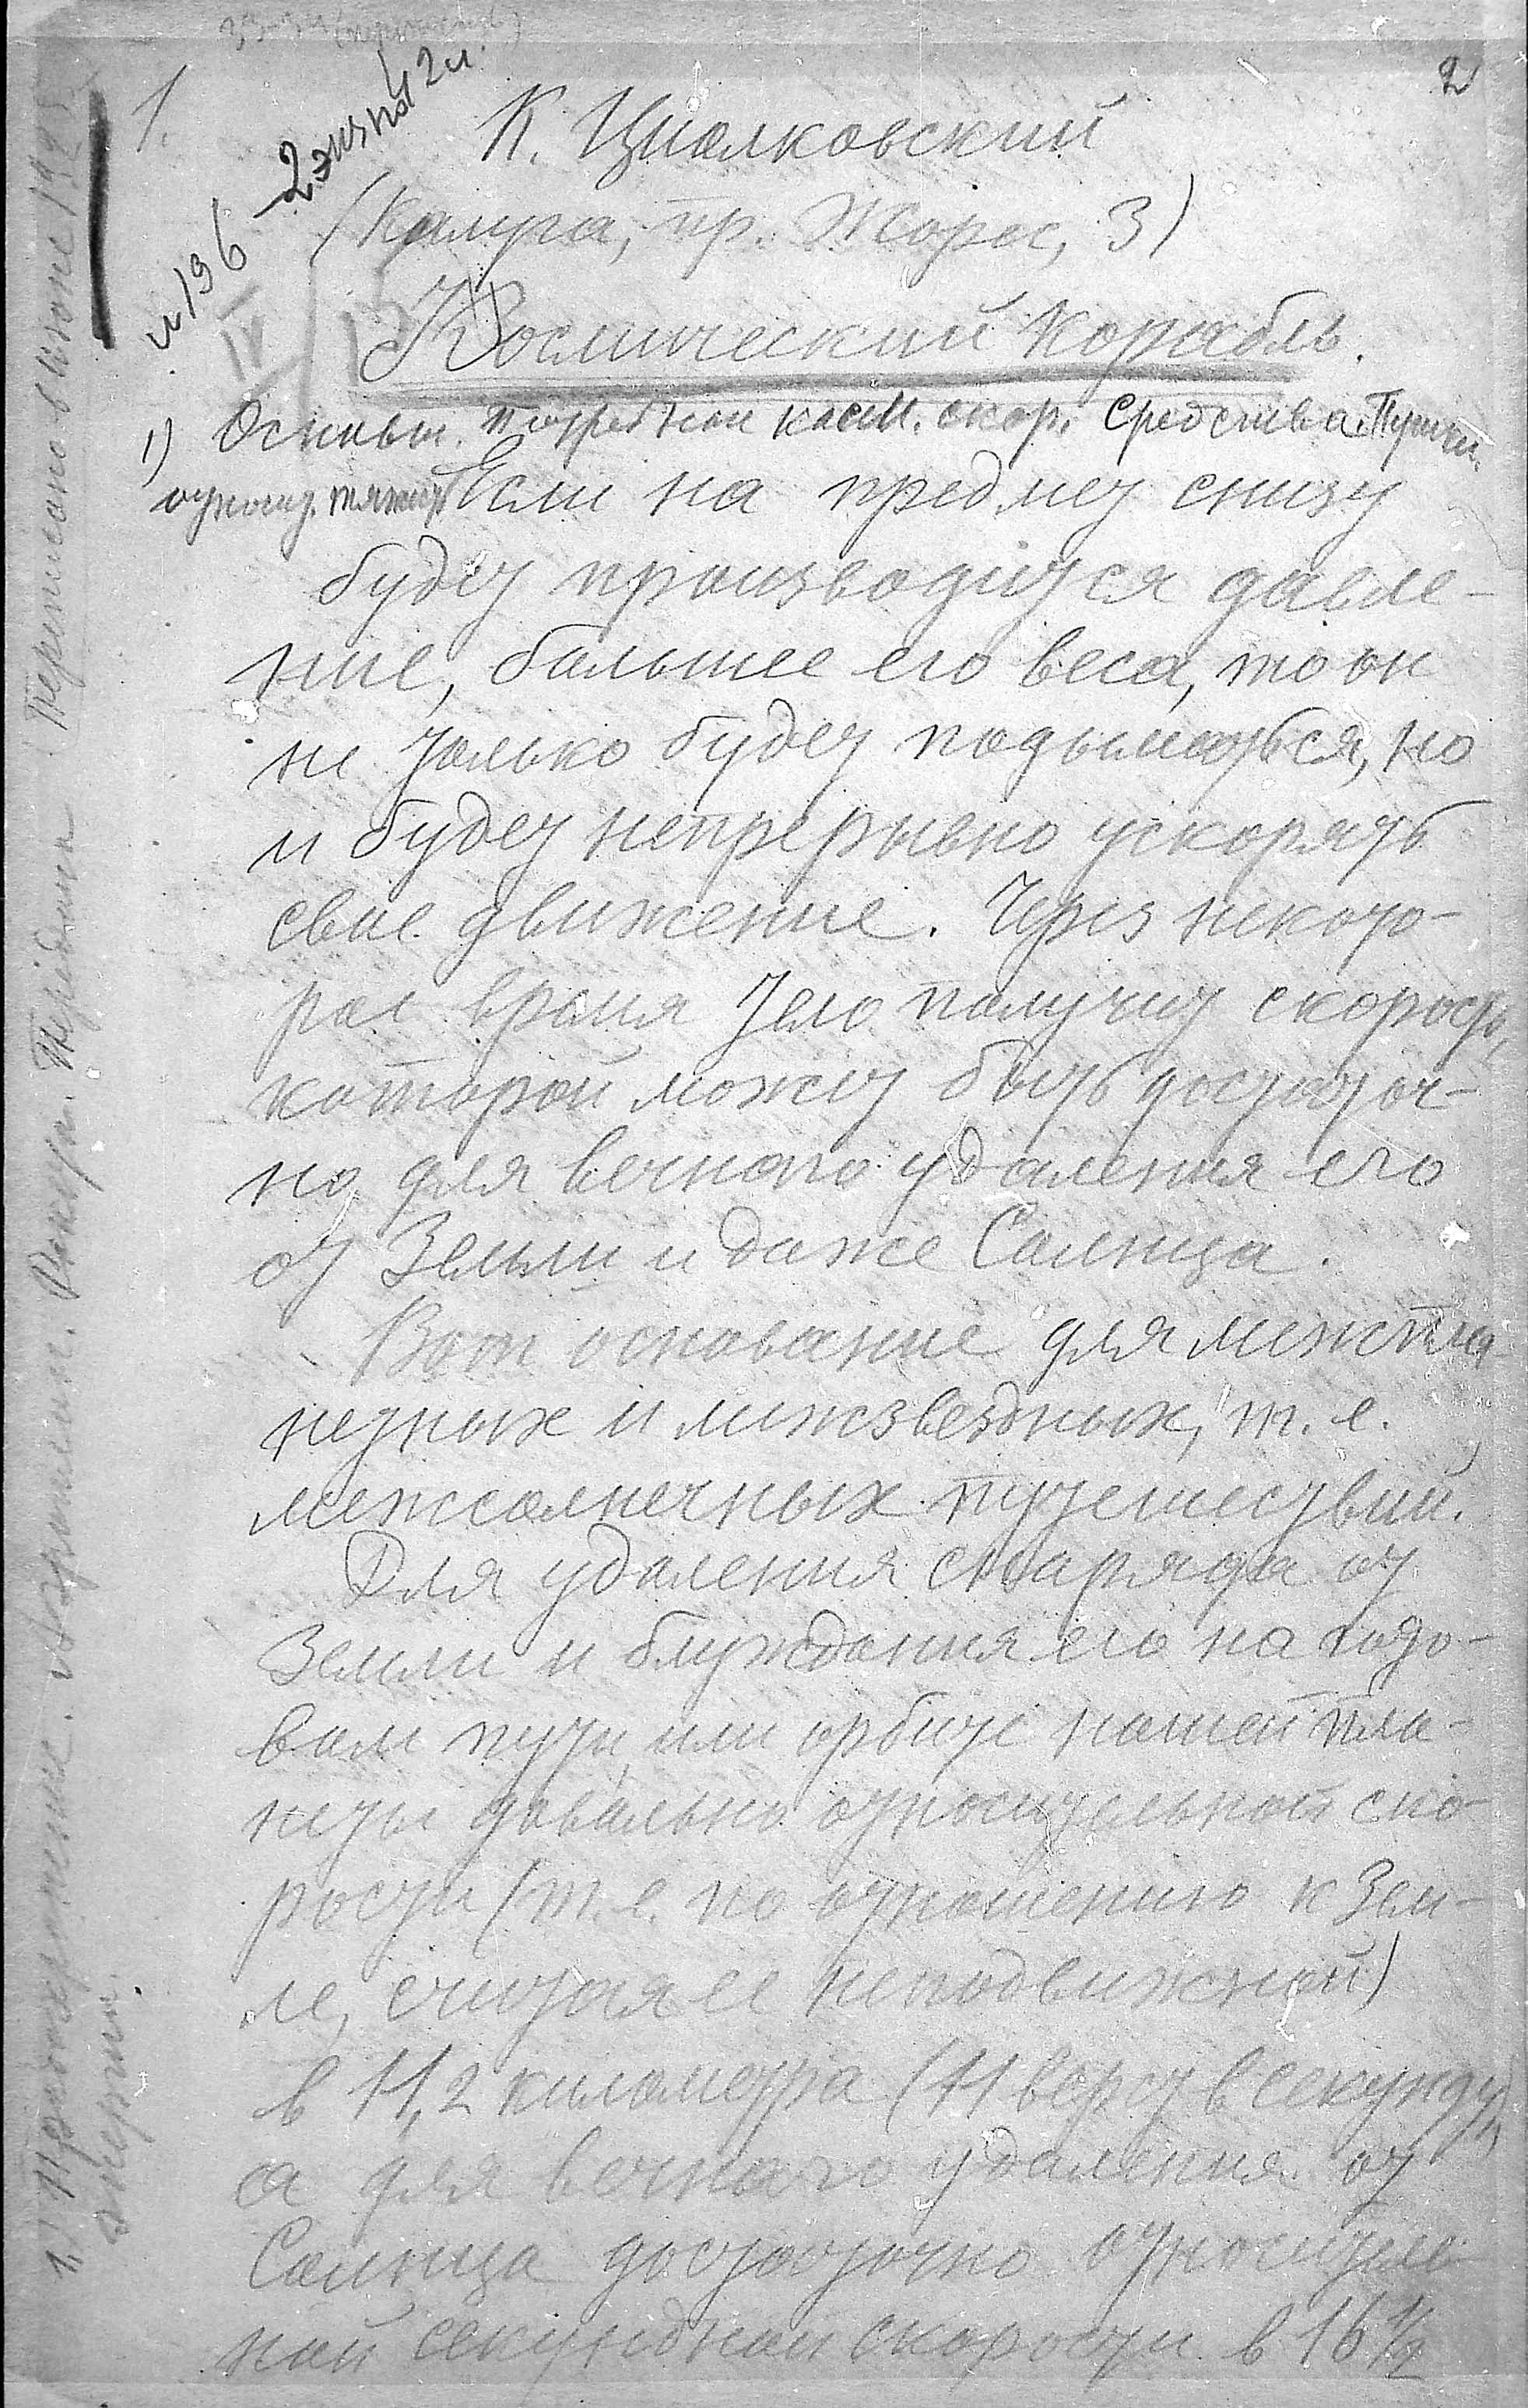 1.
2
и 196
2 экз по 12 л.
К. Циолковский
(Калуга, пр. Жорес, 3)
Космический корабль.
1) Основы. Потребная косм. скор. Средства. Пушки.
относ. тяжест. Если на предмет снизу
будет производится давле-
ние, большее его веса, то он
не только будет подыматься, но
и будет непрерывно ускорять
свое движение. Через некото-
рое время тело получит скорость,
которой может быть достаточ-
но для вечного удаления его
от Земли и даже Солнца.
Вот основание для межпла-
нетных и межзвездных, т. е.
межсолнечных путешествий.
Для удаления снаряда от
Земли и блуждания его на годо-
вом пути или орбите нашей пла-
неты довольно относительной ско-
рости (т. е. по отношению к Зем-
ле, считая ее неподвижной)
в 11,2 километра (11 верст в секунду),
а для вечного удаления от
Солнца достаточно относитель-
ной секундной скорости в 16 ½
Переписано в июне 192